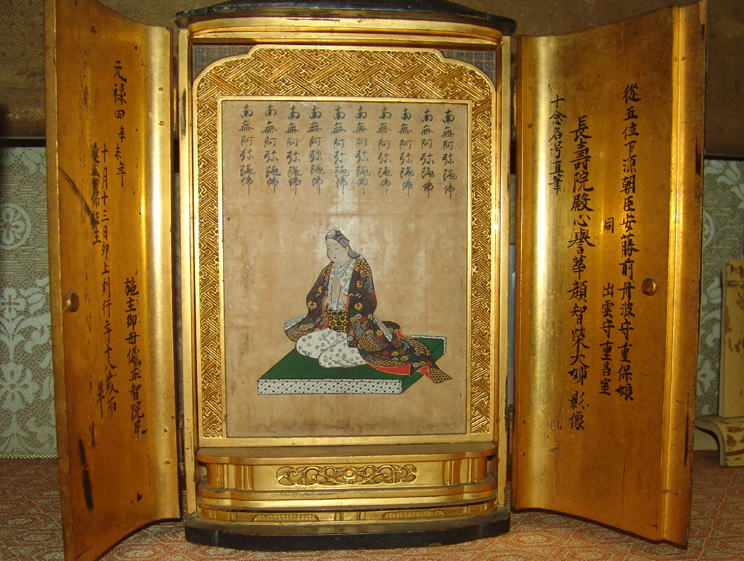 從五位下源朝臣安藤前丹波守重保娘
同 出雲守重昌室
長壽院殿心譽華顔智榮大姉影像
十念名号真筆
南無阿弥陀佛
南無阿弥陀佛
南無阿弥陀佛
南無阿弥陀佛
南無阿弥陀佛
南無阿弥陀佛
南無阿弥陀佛
南無阿弥陀佛
南無阿弥陀佛
南無阿弥陀佛
元禄四辛未年
十月十三日卯上刻行年十九歳而
施主即母儀正智院